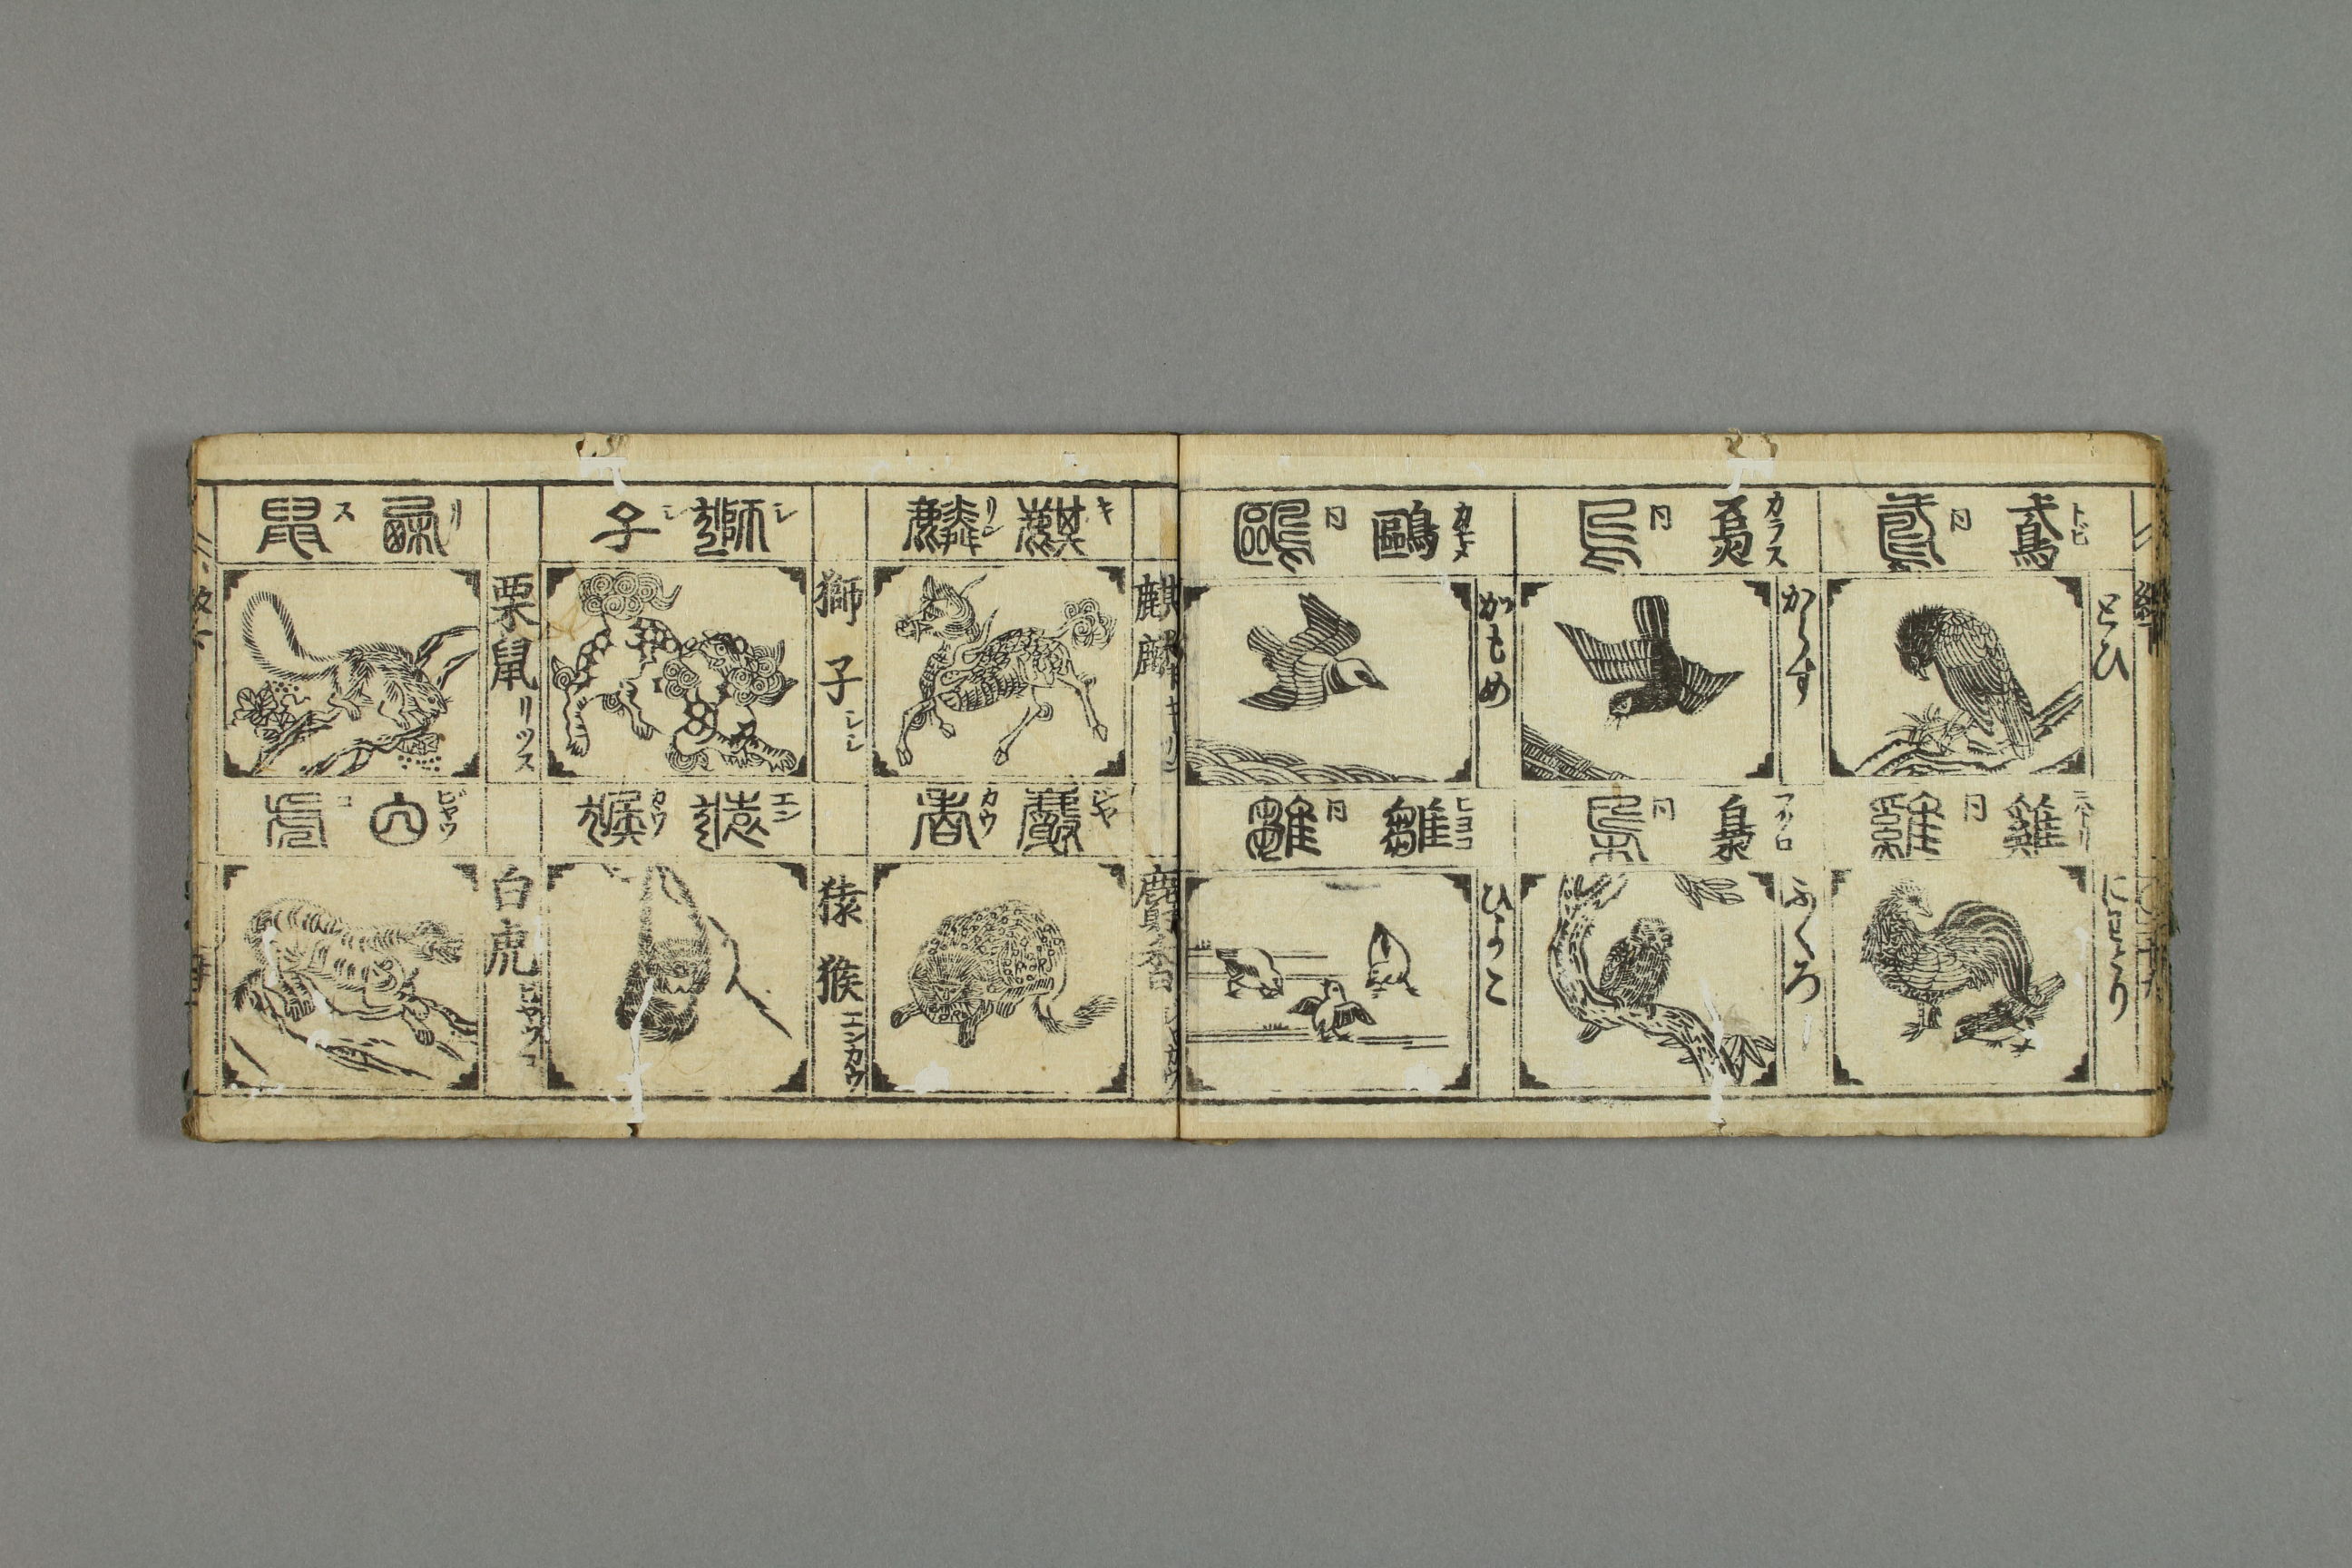 鳶 トビ
鳶 同
とひ
烏 カラス
烏 同
からす
鷗 カモメ
鷗 同
かもめ
雞 ニハトリ
雞 同
にはとり
梟 フクロ
梟 同
ふくろ
雛 ヒヨコ
雛 同
ひよこ
麒 キ 麟 リン
麒麟
獅 シ 子 シ
獅子 シシ
栗 リ 鼠 ス
栗鼠 リツス
麝 ジヤ 香 カウ
麝香
猿 エン 猴 カウ
猿猴 エンカウ
白 ビヤウ 虎 コ
白虎 ビヤウコ